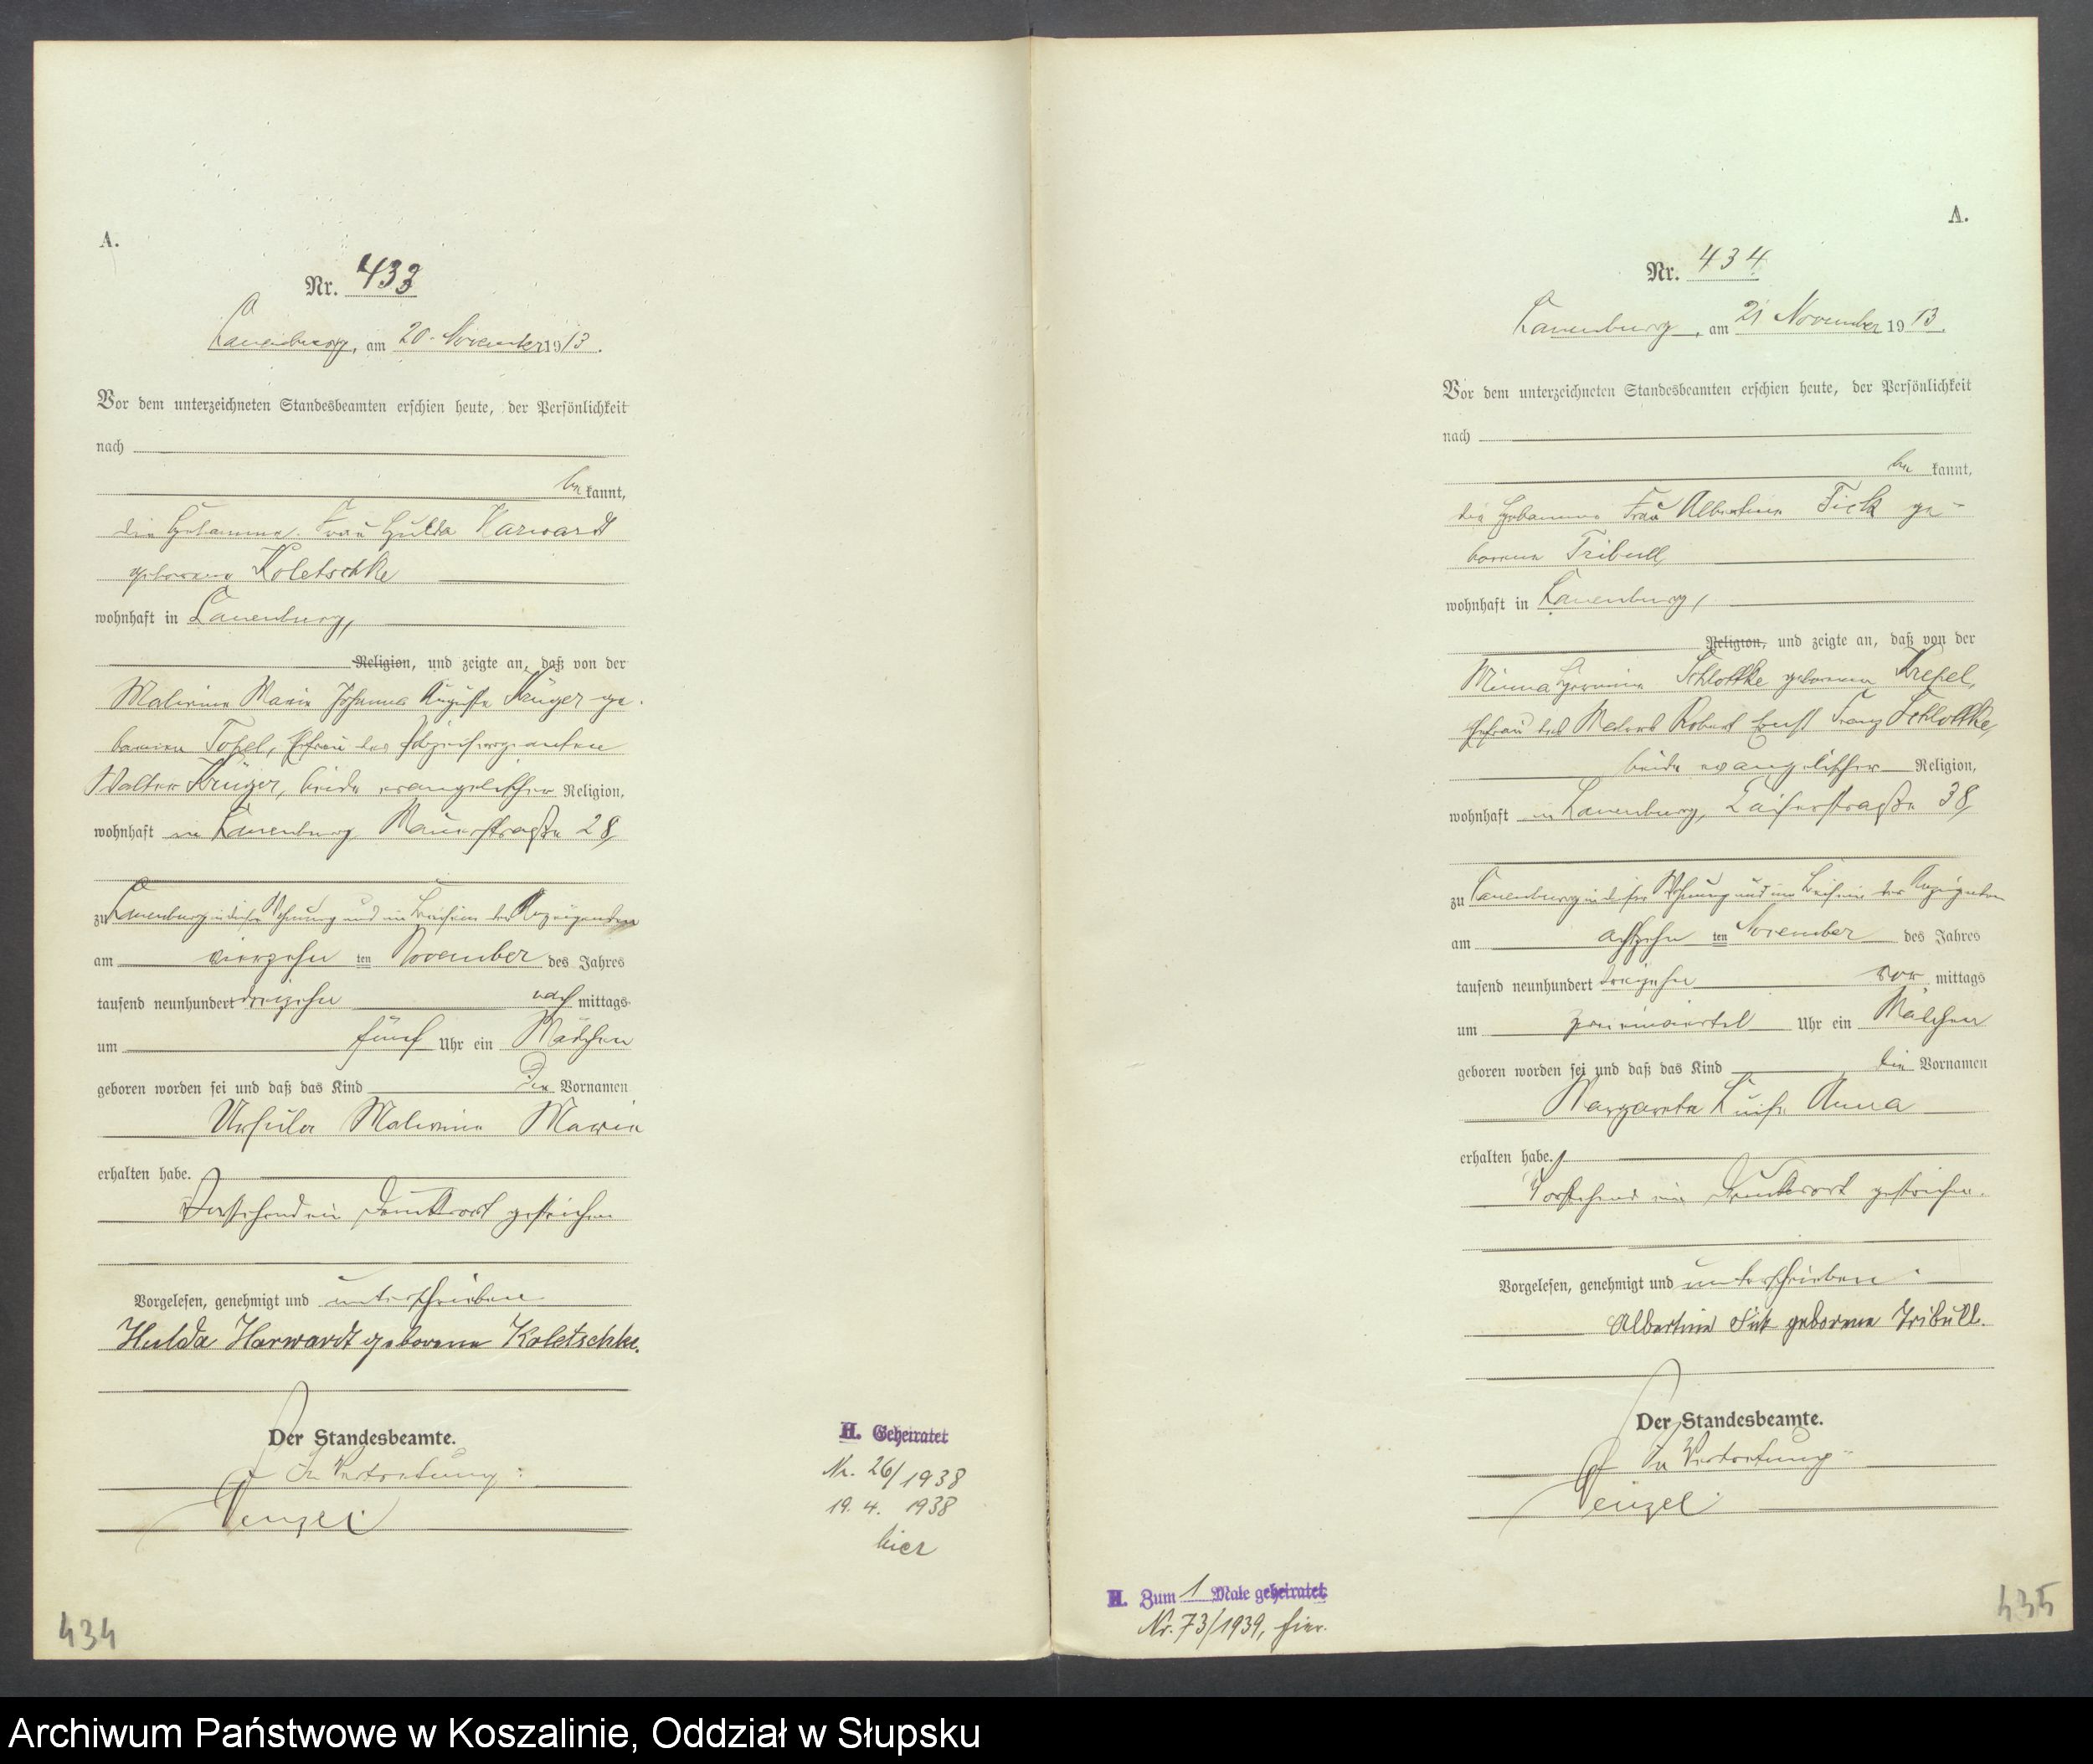 A.
Nr. 433
Lauenburg, am 20. November 1913.
Vor dem unterzeichneten Standesbeamten erschien heute, der Persönlichkeit
nach
be kannt,
die Hebamme Frau Hulda Harwardt
geborene Koletschke
wohnhaft in Lauenburg,
Religion, und zeigte an, daß von der
Malwine Marie Johanna Auguste Krüger ge-
borenen Topel, Ehefrau des
Walter Krüger, beide evangelischer Religion,
wohnhaft in Lauenburg Mauerstraße 28,
zu Lauenburg in dieser Wohnung und im Beisein der Anzeigenden
am vierzehn ten November des Jahres
tausend neunhundert dreizehn nach mittags
um fünf Uhr ein Mädchen
geboren worden sei und daß das Kind die Vornamen
Ursula Malwine Marie
erhalten habe.
Vorstehend ein Druckwort gestrichen
Vorgelesen, genehmigt und unterschrieben
Hulda Harwardt geborene Koletschke.
Der Standesbeamte.
In Vertretung:
H. Geheiratet
Nr. 26/1938
19. 4. 1938
hier
434
A.
Nr. 434
Lauenburg, am 21 November 1913.
Vor dem unterzeichneten Standesbeamten erschien heute, der Persönlichkeit
nach
be kannt,
die Hebamme Frau Albertine Fick ge-
borene Tribull,
wohnhaft in Lauenburg,
Religion, und zeigte an, daß von der
Minna Hermine Schlottke geborenen Krefel,
Ehefrau des Robert Ernst Franz Schlottke,
beide evangelischer Religion,
wohnhaft in Lauenburg, Kaiserstraße 38,
zu Lauenburg in dieser Wohnung und im Beisein der Anzeigenden
am achtzehn ten November des Jahres
tausend neunhundert dreizehn vor mittags
um Uhr ein Mädchen
geboren worden sei und daß das Kind die Vornamen
Margarete Luise Anna
erhalten habe.
Vorstehend ein Druckwort gestrichen.
Vorgelesen, genehmigt und unterschrieben
Albertine Fick geborene Tribull.
Der Standesbeamte.
In Vertretung
H. Zum 1 Male geheiratet
Nr. 73/1939, hier.
435
Archiwum Państwowe w Koszalinie, Oddział w Słupsku